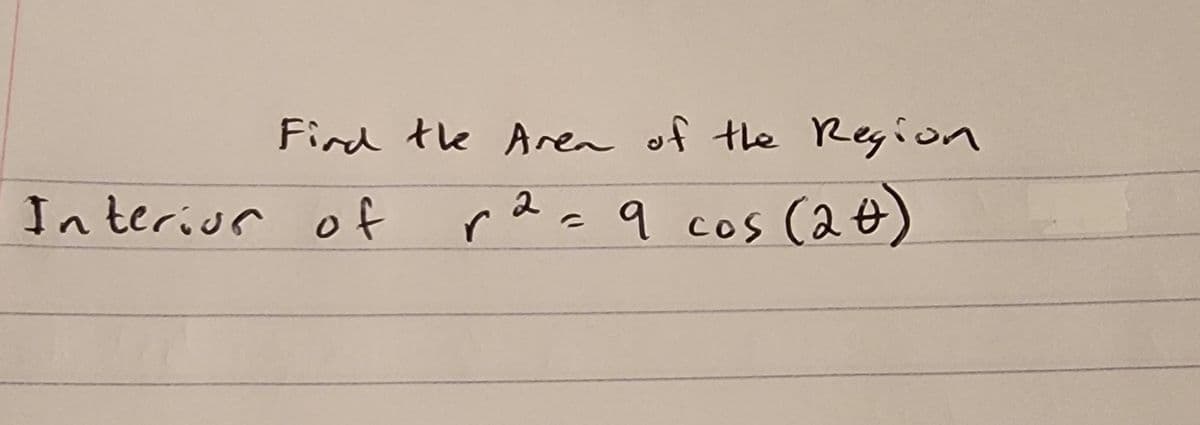 Find the Area of the Region
Interior of r² = 9 cos (2θ)